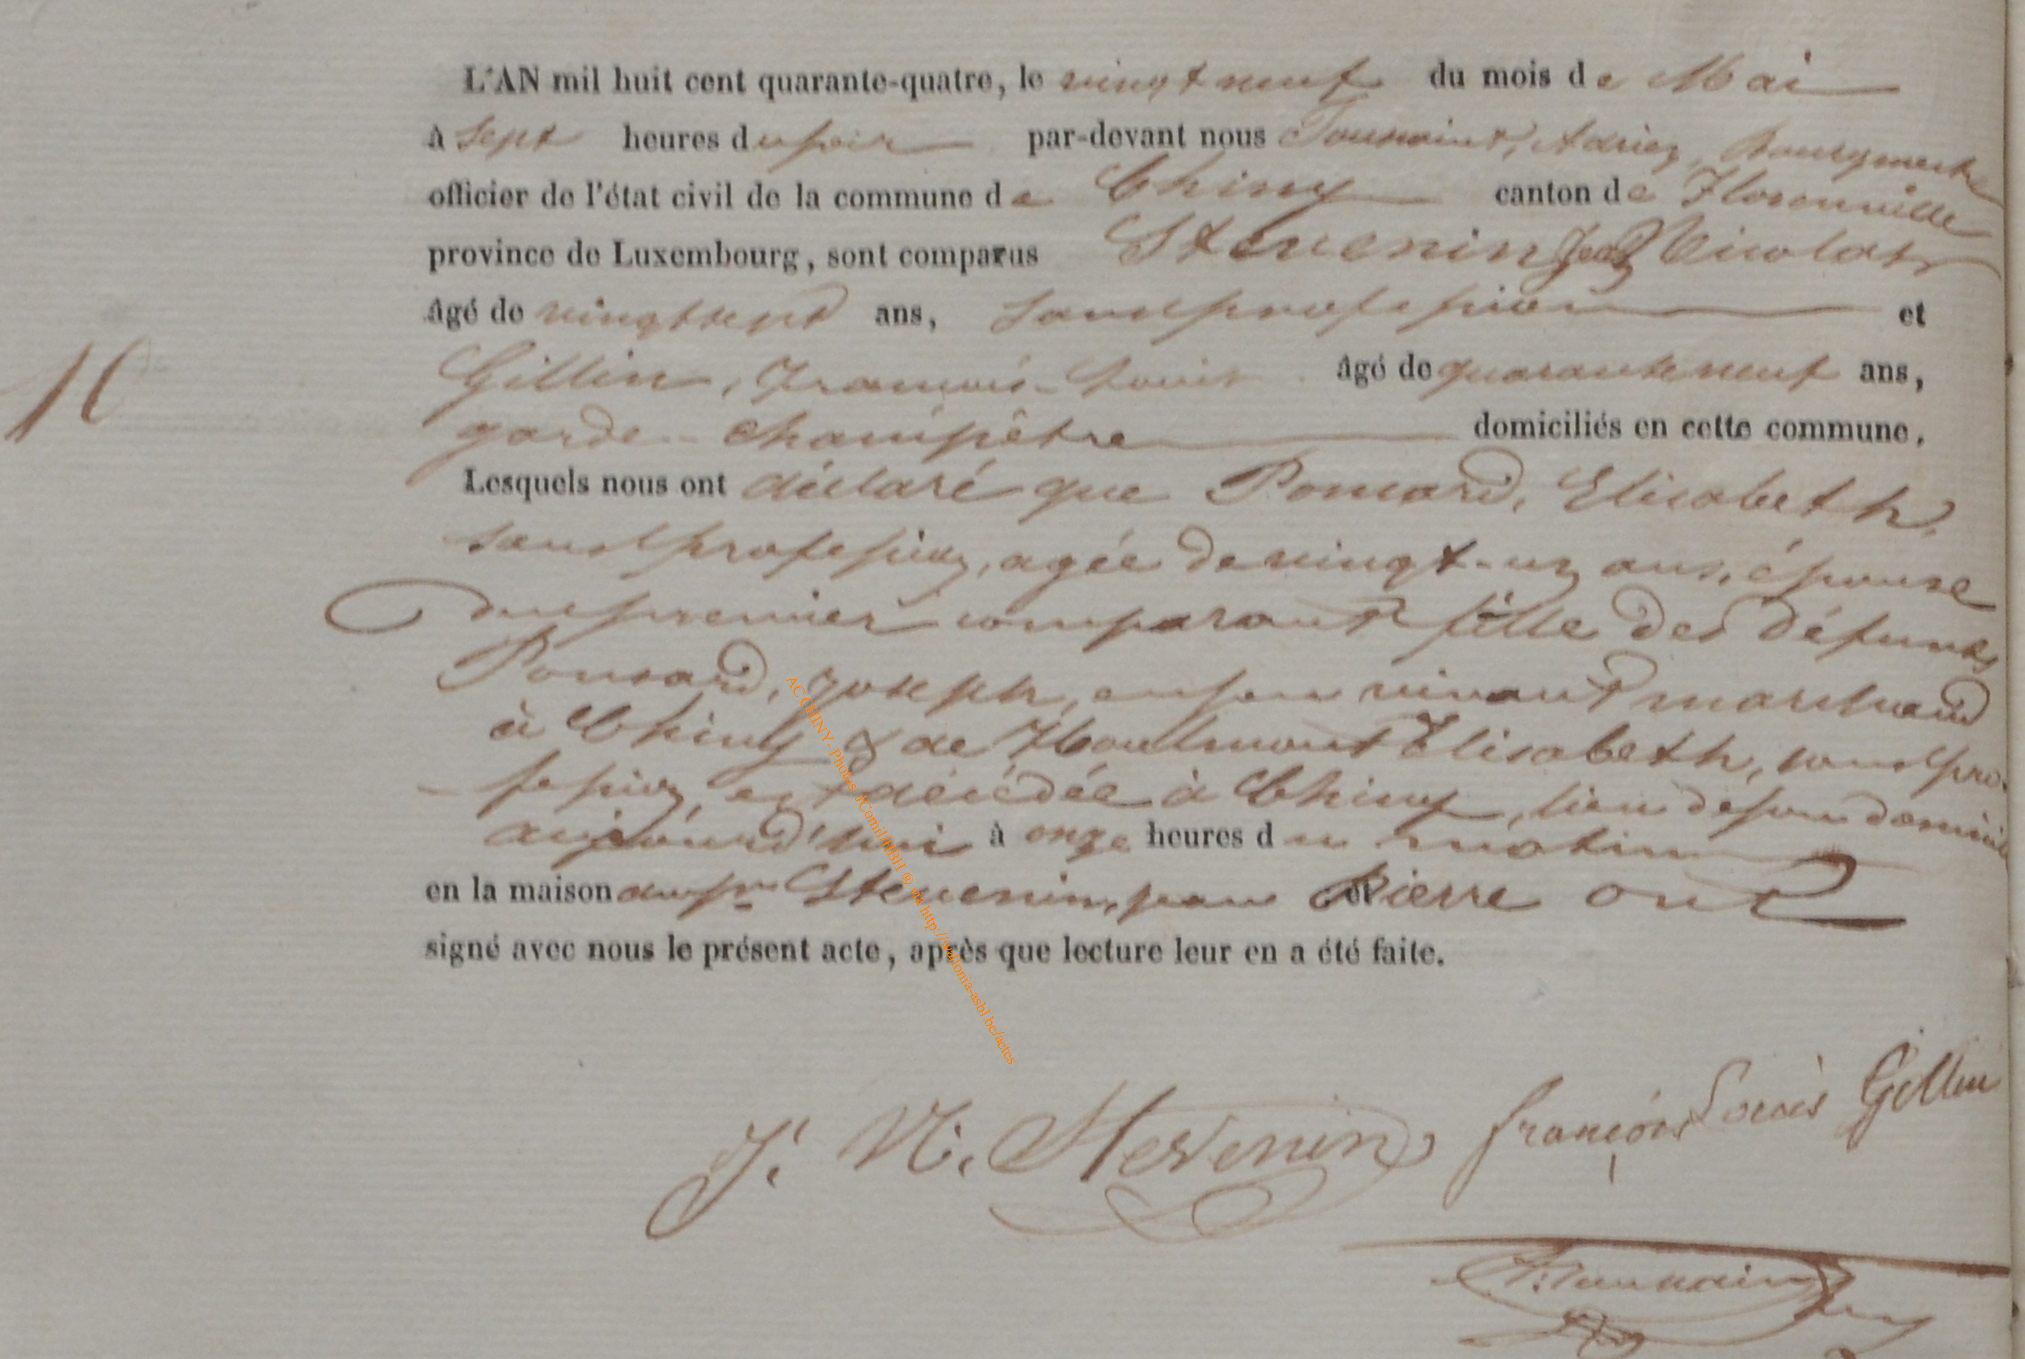 L'AN mil huit cent quarante-quatre, le vingt neuf du mois de Mai
à sept heures du soir par-devant nous Toussaint, Adrien, Bourgmestre
officier de l'état civil de la commune de Chiny canton de Florenville
province de Luxembourg, sont comparus Stevenin Jean Nicolas
âgé de vingt sept ans, sans profession et
Gillin, François-Louis âgé de quarante neuf ans,
garde-champêtre domiciliés en cette commune.
10
Lesquels nous ont déclaré que Ponsard, Elisabeth,
sans profession, agée de vingt-un ans, épouse
du premier comparant fille des défunts
Ponsard, Joseph, en son vivant marchand
à Chiny & de Elisabeth, sans pro-
-fession, est décédée à Chiny, lieu de son domicile
aujourd'hui à onze heures du matin
en la maison du Sr Stevenin, jean Pierre ont
signé avec nous le présent acte, après que lecture leur en a été faite.
J. N. Stevenin françois Louis Gillin
A. Toussaint